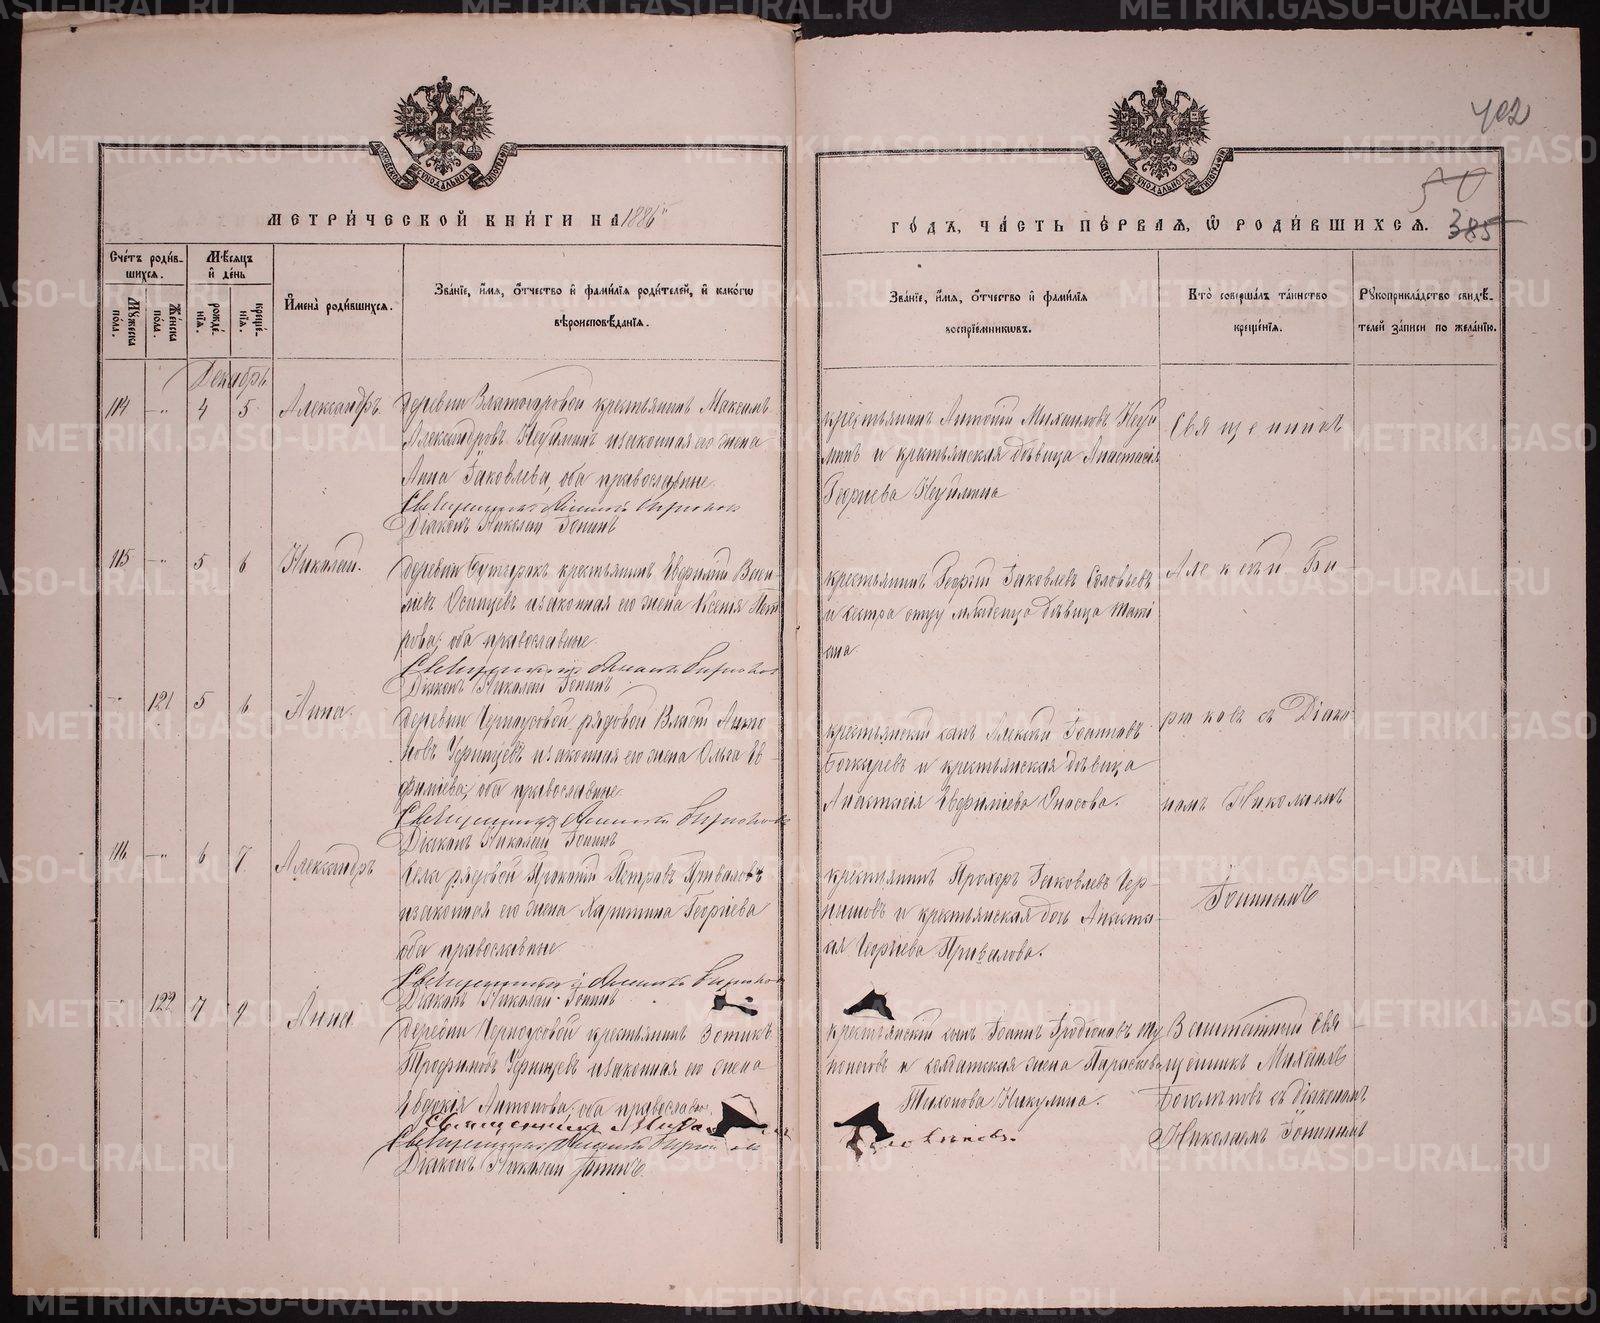 METRIKI.GASO-URAL.RU
402
50
385
МЕТРИ́ЧЕСКОЙ КНИ́ГИ НА 1886й
ГО́ДЪ, ЧА́СТЬ ПЕ́РВАЯ, Ѡ҆ РОДИ́ВШИХСЯ.
Сче́тъ роди́в-
шихся.
Мѣ́сяцъ
и҆ де́нь
Му́жеска
по́ла.
Же́нска
по́ла.
рожде́-
нїя.
креще́-
нїя.
И҆мена̀ роди́вшихся.
Зва́нїе, и҆́мя, ѻ҆́тчество и҆ фами́лїя роди́телей, и҆ како́гѡ
вѣроисповѣ́данїя.
Зва́нїе, и҆́мя, ѻ҆́тчество и҆ фами́лїя
воспрїе́мникѡвъ.
Кто̀ соверша́лъ та́инство
креще́нїя.
Рꙋкоприкла́дство свидѣ́-
телей за́писи по жела́нїю.
Декабрь
114 — „ 4 5 Александръ.
деревни Златогоровой крестьянинъ Максимъ
Александровъ Неуйминъ и законная его жена
Анна Іаковлева, оба православные.
Священникъ Алексій Бирюковъ
Діаконъ Николай Іонинъ
крестьянинъ Антоній Михаиловъ Неуй
минъ и крестьянская дѣвица Анастасія
Георгіева Неуймина
Священникъ
115 — „ 5 6 Николай.
деревни крестьянинъ Евфимій Васи
ліевъ Осинцевъ и законная его жена Ксенія Пет
рова, оба православные.
Священникъ Алексій Бирюковъ
Діаконъ Николай Іонинъ
крестьянинъ Георгій Іаковлевъ Соловьевъ
и сестра отцу младенца дѣвица Тати
ана.
Алексѣй Би-
„ 121 5 6 Анна.
деревни Черноусовой рядовой Власій Анто
новъ Устинцевъ и законная его жена Ольга Ев-
фиміева, оба православные.
Священникъ Алексій Бирюковъ
Діаконъ Николай Іонинъ
крестьянскій сынъ Алексѣй Іоанновъ
Бочкаревъ и крестьянская дѣвица
Анастасія Евфиміева
рюковъ съ Діако-
номъ Николаемъ
116 — „ 6 7 Александръ
Села рядовой Петровъ Приваловъ
и законная его жена Харитина Георгіева
оба православные
Священникъ Алексій Бирюковъ
Діаконъ Николай Іонинъ
крестьянинъ Прохоръ Іаковлевъ Чер-
нышовъ и крестьянская дочь Анаста-
сія Георгіева Привалова.
Іонинымъ
„ 122 7 9 Анна
деревни Черноусовой крестьянинъ Зотикъ
Трофимовъ Устинцевъ и законная его жена
Евдокія Антонова, оба православн.
Священникъ
Священникъ Алексій
Діаконъ Николай Іонинъ.
крестьянскій сынъ Іоаннъ Иродіоновъ
и солдатская жена Параскева
Тихонова Никулина.
Заштатный Свя-
щенникъ Михаилъ
съ Діакономъ
Николаемъ Іонинымъ